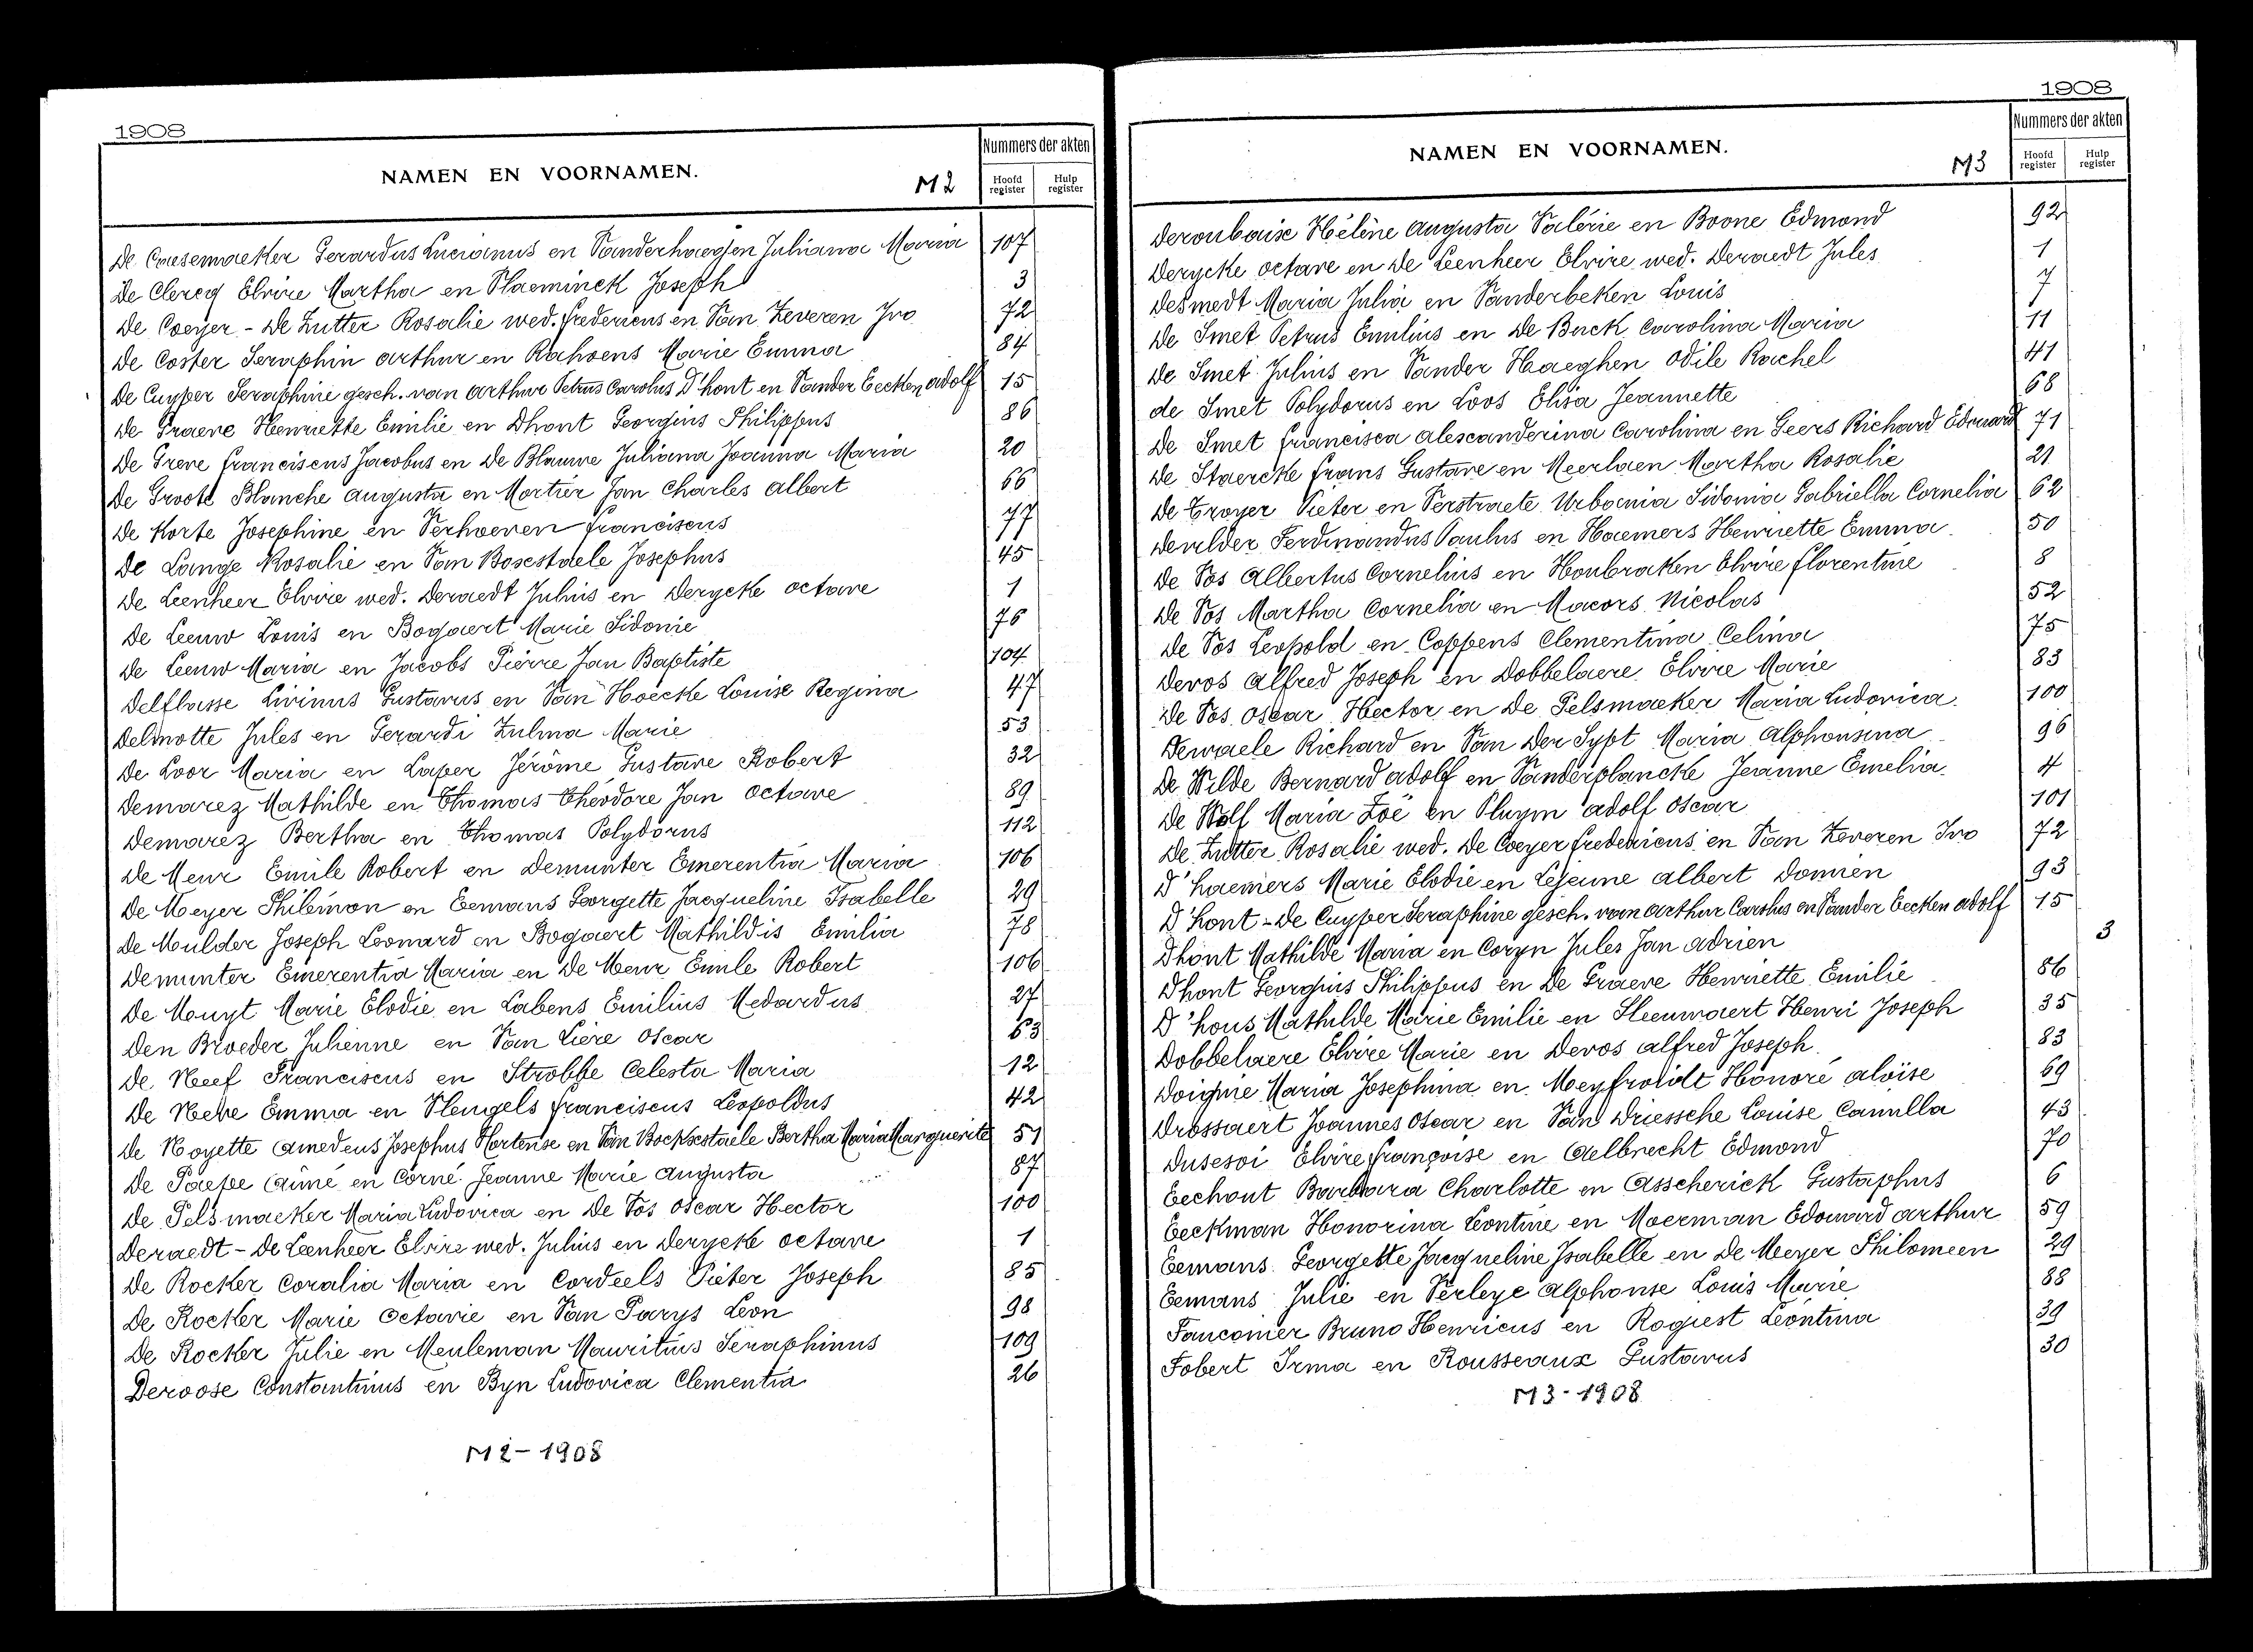 1908
NAMEN EN VOORNAMEN.
M2
Nummers der akten
Hoofd register
Hulp register
De Causemaeker Gerardus Lucianus en Vanderhaegen Juliana Maria 107
De Clercq Elvire Martha en Vlaeminck Joseph 3
De Coeyer - De Zutter Rosalie wed. Fredericus en Van Zeveren Ivo 72
De Coster Seraphin Arthur en Rahoens Marie Emma 84
De Cuyper Seraphine gesch. van Arthur Petrus Carolus D'hont en Vander Eecken Adolf 15
De Graeve Henriette Emilie en Dhont Georgius Philippus 86
De Greve Franciscus Jacobus en De Blauwe Juliana Joanna Maria 20
De Groote Blanche Augusta en Mortier Jan Charles Albert 66
De Korte Josephine en Verhoeven Franciscus 77
De Lange Rosalie en Van Boxestaele Josephus 45
De Leenheer Elvire wed. Deraedt Julius en Derycke Octave 1
De Leeuw Louis en Bogaert Marie Sidonie 76
De Leeuw Maria en Jacobs Pierre Jan Baptiste 104
Delflasse Livinus Gustavus en Van Hoecke Louise Regina 47
Delmotte Jules en Gerardi Zulma Marie 53
De Loor Maria en Laper Jérôme Gustave Robert 32
Demarez Mathilde en Thomas Théodore Jan Octave 89
Demarez Bertha en Thomas Polydorus 112
De Meur Emile Robert en Demunter Emerentia Maria 106
De Meyer Philémon en Eemans Georgette Jacqueline Isabelle 29
De Mulder Joseph Leonard en Bogaert Mathildis Emilia 78
Demunter Emerentia Maria en De Meur Emile Robert 106
De Muyt Marie Elodie en Labens Emilius Medardus 27
Den Broeder Julienne en Van Liere Oscar 63
De Neef Franciscus en Strobbe Celesta Maria 12
De Neve Emma en Vleugels Franciscus Leopoldus 42
De Noyette Amedeus Josephus Hortense en Van Bockxstaele Bertha Maria Marguerite 51
De Paepe Aimé en Corné Jeanne Marie Augusta 87
De Pelsmaeker Maria Ludovica en De Vos Oscar Hector 100
Deraedt - De Leenheer Elvire wed. Julius en Derycke Octave 1
De Rocker Coralia Maria en Cordeels Pieter Joseph 85
De Rocker Marie Octavie en Van Parys Leon 98
De Rocker Julie en Meuleman Mauritius Seraphinus 109
Deroose Constantinus en Byn Ludovica Clementia 26
M2 - 1908
1908
NAMEN EN VOORNAMEN.
M3
Nummers der akten
Hoofd register
Hulp register
Deroubaise Hélène Augusta Valérie en Boone Edmond 92
Derycke Octave en De Leenheer Elvire wed. Deraedt Jules 1
Desmedt Maria Julia en Vanderbeken Louis 7
De Smet Petrus Emilius en De Buck Carolina Maria 11
De Smet Julius en Vander Haeghen Odile Rachel 41
de Smet Polydorus en Loos Elisa Jeannette 68
De Smet Francisca Alexanderina Carolina en Geers Richard Edouard 71
De Staercke Frans Gustave en Meerlaen Martha Rosalie 21
De Troyer Pieter en Verstraete Urbania Sidonia Gabriella Cornelia 62
Devilder Ferdinandus Paulus en Haemers Henriette Emma 50
De Vos Albertus Cornelius en Houbraken Elvire Florentine 8
De Vos Martha Cornelia en Macors Nicolas 52
De Vos Leopold en Coppens Clementina Celina 75
Devos Alfred Joseph en Dobbelaere Elvire Marie 83
De Vos Oscar Hector en De Pelsmaeker Maria Ludovica 100
Dewaele Richard en Van Der Sypt Maria Alphonsina 96
De Wilde Bernard Adolf en Vanderplancke Jeanne Emelia 4
De Wolf Maria Zoë en Pluym Adolf Oscar 101
De Zutter Rosalie wed. De Coeyer Fredericus en Van Zeveren Ivo 72
D'haemers Marie Elodie en Lejeune Albert Donnien 93
D'hont - De Cuyper Seraphine gesch. van Arthur Carolus en Vander Eecken Adolf 15
Dhont Mathilde Maria en Coryn Jules Jan Adrien 3
Dhont Georgius Philippus en De Graeve Henriette Emilie 86
D'hous Mathilde Marie Emilie en Sleeuwaert Henri Joseph 35
Dobbelaere Elvire Marie en Devos Alfred Joseph 83
Doignie Maria Josephina en Meyfroidt Honoré Aloïse 69
Drossaert Joannes Oscar en Van Driessche Louise Camilla 43
Dusesoi Elvire Françoise en Aelbrecht Edmond 70
Eechout Barbara Charlotte en Asscherick Gustaphus 6
Eeckman Honorina Leontine en Moerman Edouard Arthur 59
Eemans Georgette Jacqueline Isabelle en De Meyer Philomeen 29
Eemans Julie en Verleye Alphonse Louis Marie 88
Fauconier Bruno Henricus en Rogiest Leontina 39
Fobert Irma en Rousseaux Gustavus 30
M3 - 1908